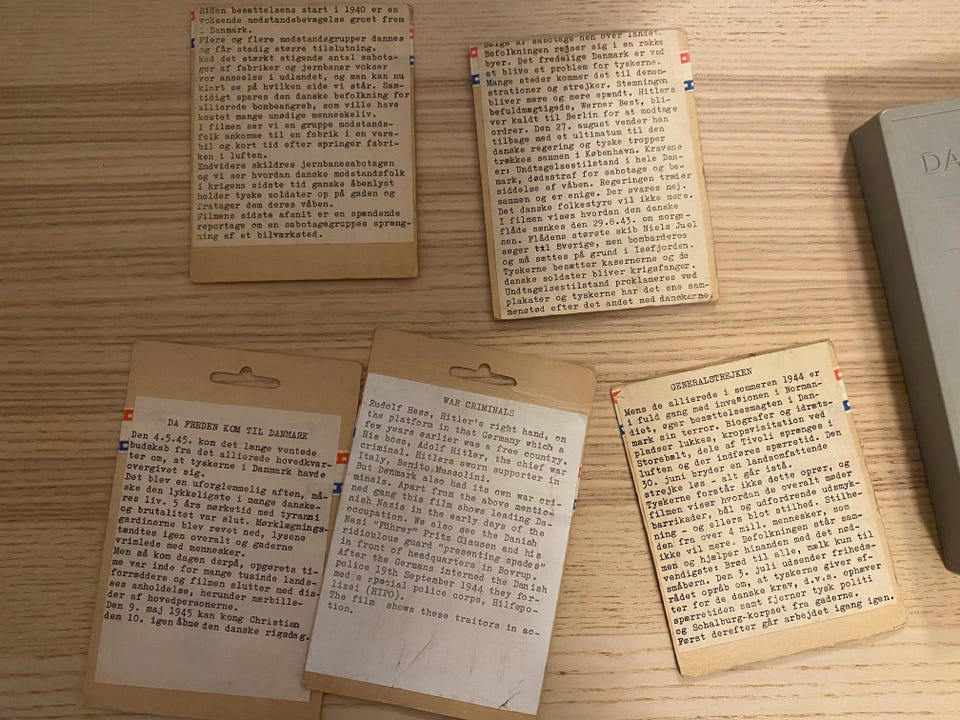 Siden besættelsens start i 1940 er en
voksende modstandsbevægelse groet frem
i Danmark.
Flere og flere modstandsgrupper dannes
og får stadig større tilslutning.
Med det stærkt stigende antal sabota-
ger af fabriker og jernbaner vokser
vor anseelse i udlandet, og man kan nu
klart se på hvilken side vi står. Sam-
tidigt spares den danske befolkning for
allierede bombeangreb, som ville have
kostet mange unødige menneskeliv.
I filmen ser vi en gruppe modstands-
folk ankomme til en fabrik i en vare-
bil og kort tid efter springer fabri-
ken i luften.
Endvidere skildres jernbanesabotagen
og vi ser hvordan danske modstandsfolk
i krigens sidste tid ganske åbenlyst
holder tyske soldater op på gaden og
fratager dem deres våben.
Filmens sidste afsnit er en spændende
reportage om en sabotagegruppes spræng-
ning af et bilværksted.
bølge af sabotage hen over landet.
Befolkningen rejser sig i en række
byer. Det fredelige Danmark er ved
at blive et problem for tyskerne.
Mange steder kommer det til demon-
strationer og strejker. Stemningen
bliver mere og mere spændt. Hitlers
befuldmægtigede, Werner Best, bli-
ver kaldt til Berlin for at modtage
ordrer. Den 27. august vender han
tilbage med et ultimatum til den
danske regering og tyske tropper
trækkes sammen i København. Kravene
er: Undtagelsestilstand i hele Dan-
mark, dødsstraf for sabotage og be-
siddelse af våben. Regeringen træder
sammen og er enige. Der svares nej.
Det danske folkestyre vil ikke mere.
I filmen vises hvordan den danske
flåde sænkes den 29.8.43. om morge-
nen. Flådens største skib Niels Juel
søger til Sverige, men bombarderes
og må sættes på grund i Isefjorden.
Tyskerne besætter kasernerne og de
danske soldater bliver krigsfanger.
Undtagelsestilstand proklameres ved
plakater og tyskerne har det ene sam-
menstød efter det andet med danskerne.
DA
DA FREDEN KOM TIL DANMARK
Den 4.5.45. kom det længe ventede
budskab fra det allierede hovedkvar-
ter om, at tyskerne i Danmark havde
overgivet sig.
Det blev en uforglemmelig aften, må-
ske den lykkeligste i mange danske-
res liv. 5 års mørketid med tyranni
og brutalitet var slut. Mørklægnings-
gardinerne blev revet ned, lysene
tændtes igen overalt og gaderne
vrimlede med mennesker.
Men så kom dagen derpå, opgørets ti-
me var inde for mange tusinde lands-
forrædere og filmen slutter med dis-
ses anholdelse, herunder nærbille-
der af hovedpersonerne.
Den 9. maj 1945 kan kong Christian
den 10. igen åbne den danske rigsdag.
WAR CRIMINALS
Rudolf Hess, Hitler's right hand, on
the platform in that Germany which a
few years earlier was a free country.
His boss, Adolf Hitler, the chief war
criminal. Hitlers sworn supporter in
Italy, Benito Mussolini.
But Denmark also had its own war cri-
minals. Apart from the above mention-
ned gang this film shows leading Da-
nish Nazis in the early days of the
occupation. We also see the Danish
Nazi "Führer" Fritz Clausen and his
ridiculous guard "presenting spades"
in front of headquarters in Bovrup.
After the Germans interned the Danish
police 19th September 1944 they for-
med a special police corps, Hilfspo-
lizei (HIPO).
The film shows these traitors in ac-
tion.
GENERALSTREJKEN
Mens de allierede i sommeren 1944 er
i fuld gang med invasionen i Norman-
diet, øger besættelsesmagten i Dan-
mark sin terror. Biografer og idræts-
pladser lukkes, kropsvisitation ved
Storebælt, dele af Tivoli sprænges i
luften og der indføres spærretid. Den
30. juni bryder en landsomfattende
strejke løs - alt går istå.
Tyskerne forstår ikke dette oprør, og
filmen viser hvordan de overalt møder
barrikader, bål og udfordrende udsmyk-
ning - og ellers blot stilhed - Stilhe-
den fra over 4 mill. mennesker, som
ikke vil mere. Befolkningen står sam-
men og hjælper hinanden med det nød-
vendigste: Brød til alle, mælk kun til
småbørn. Den 3. juli udsender friheds-
rådet opråb om, at tyskerne giver ef-
ter for de danske krav, d.v.s. ophæver
spærretiden samt fjerner tysk politi
og Schalburg-korpset fra gaderne.
Først derefter går arbejdet igang igen.